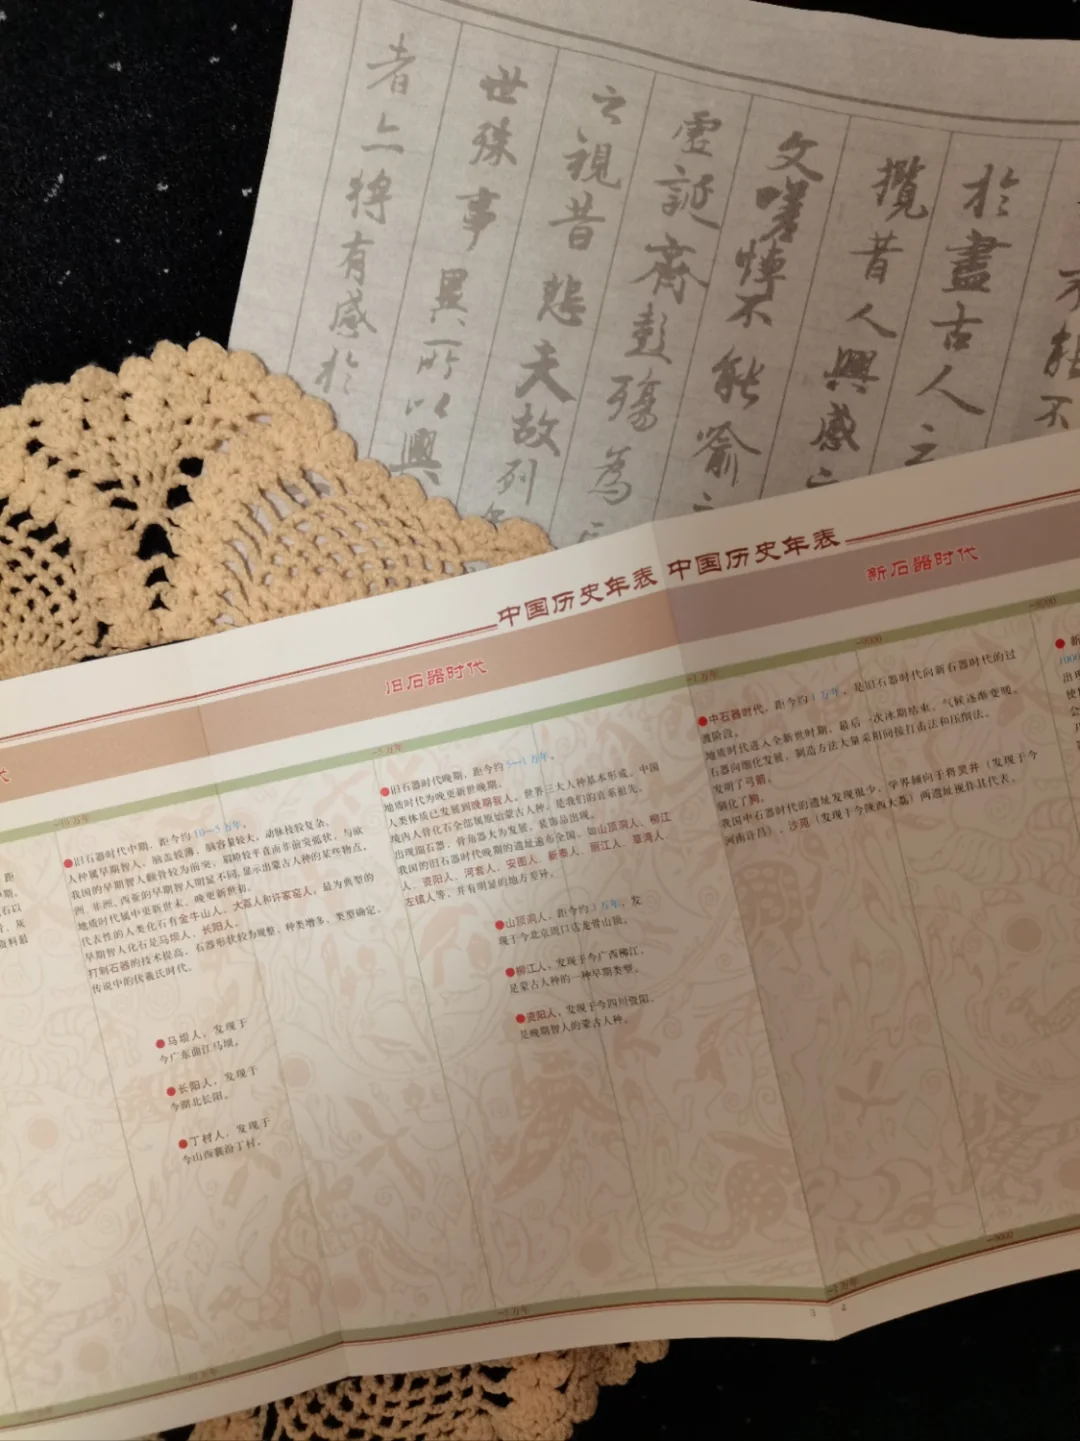 於盡古人之
攬昔人興感之
文嗟悼不能喻之
虛誕齊彭殤為
之視昔悲夫故列
世殊事異所以興
者亦將有感於
中国历史年表
中国历史年表
旧石器时代
新石器时代
-10万年
旧石器时代中期，距今约10—5万年。
人种属早期智人，脑盖较薄，脑容量较大，动脉枝较复杂。
我国的早期智人颧骨较为前突，眉嵴较平直而非前突弧状，与欧
洲、非洲、西亚的早期智人明显不同，显示出蒙古人种的某些特点。
地质时代属中更新世末、晚更新世初。
代表性的人类化石有金牛山人、大荔人和许家窑人，最为典型的
早期智人化石是马坝人、长阳人。
打制石器的技术提高，石器形状较为规整，种类增多，类型确定。
传说中的伏羲氏时代。
马坝人，发现于
今广东曲江马坝。
长阳人，发现于
今湖北长阳。
丁村人，发现于
今山西襄汾丁村。
-5万年
旧石器时代晚期，距今约5—1万年。
地质时代为晚更新世晚期。
人类体质已发展到晚期智人，世界三大人种基本形成，中国
境内人骨化石全部属原始蒙古人种，是我们的直系祖先。
出现细石器，骨角器大为发展，装饰品出现。
我国的旧石器时代晚期的遗址遍布全国，如山顶洞人、柳江
人、资阳人、河套人、安图人、新泰人、丽江人、草湾人、
左镇人等，并有明显的地方差异。
山顶洞人，距今约3万年，发
现于今北京周口店龙骨山顶。
柳江人，发现于今广西柳江，
是蒙古人种的一种早期类型。
资阳人，发现于今四川资阳，
是晚期智人的蒙古人种。
-1万年
-9000
-8000
中石器时代，距今约1万年，是旧石器时代向新石器时代的过
渡阶段。
地质时代进入全新世时期，最后一次冰期结束，气候逐渐变暖。
石器向细化发展，制造方法大量采用间接打击法和压削法。
发明了弓箭。
驯化了狗。
我国中石器时代的遗址发现很少，学界倾向于将灵井（发现于今
河南许昌）、沙苑（发现于今陕西大荔）两遗址视作其代表。
-10万年
-5万年
-1万年
-9000
3
4